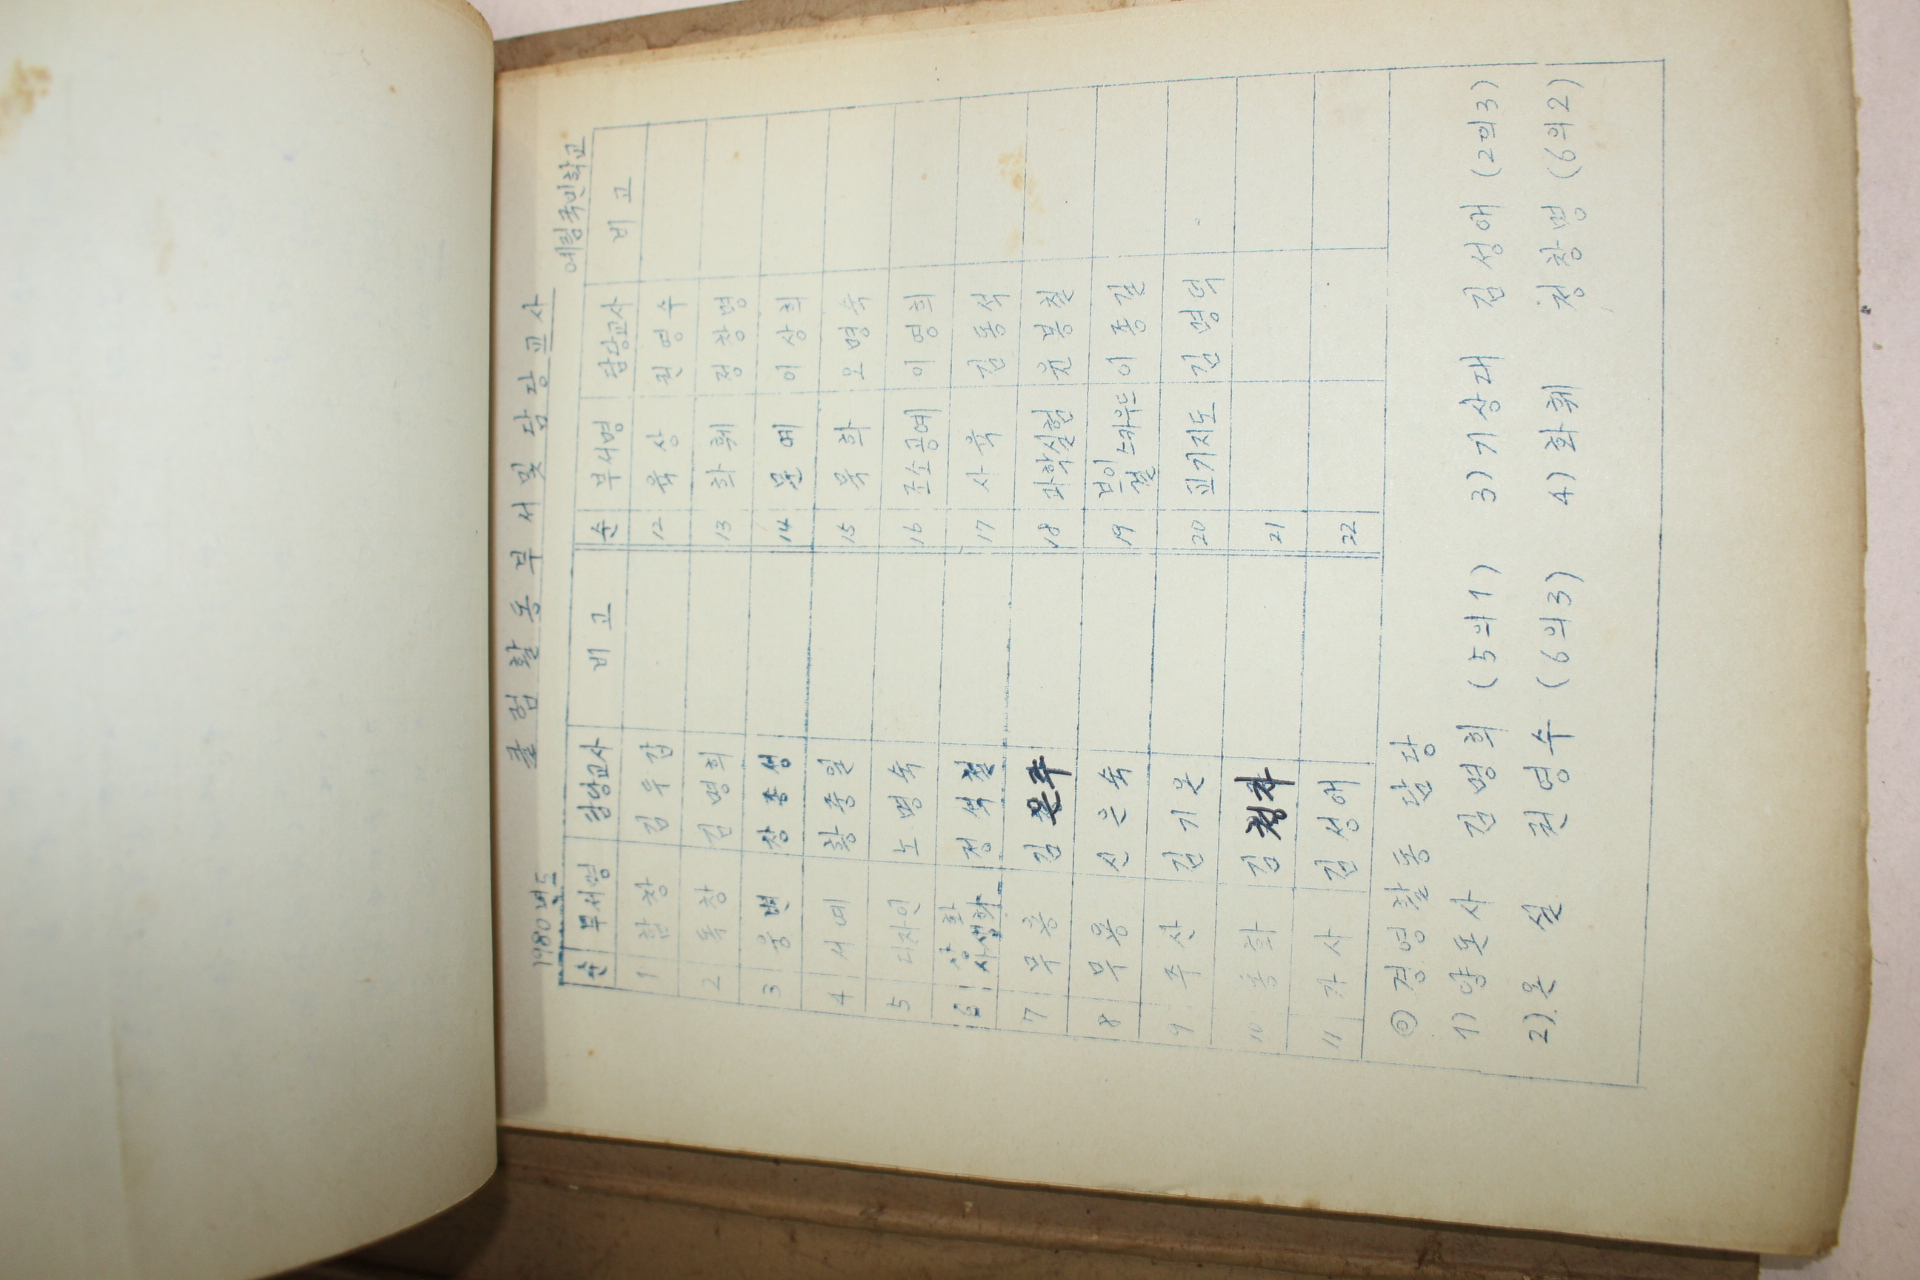 클럽활동부서및담당교사
1980년도
예림국민학교
순 부서명 담당교사 비고 순 부서명 담당교사 비고
1 합창 김두갑 12 육상 권영수
2 독창 김명희 13 화훼 정창명
3 웅변 장종성 14 문예 이상희
4 서예 황중일 15 묵화 오명숙
5 디자인 노명숙 16 조소공예 이영희
6 상화 사생화 정석철 17 사육 김동석
7 무용 김은주 18 과학실험 윤봉철
8 무용 신은숙 19 보이 걸 스카우드 이종길
9 주산 김기온 20 교기지도 김명덕
10 동화 김청자 21
11 가사 김성애 22
◎ 경영활동 담당
1) 양돈사 김명희 (5의1) 3) 기상대 김성애 (2의3)
2) 온실 권영수 (6의3) 4) 화훼 정창명 (6의2)